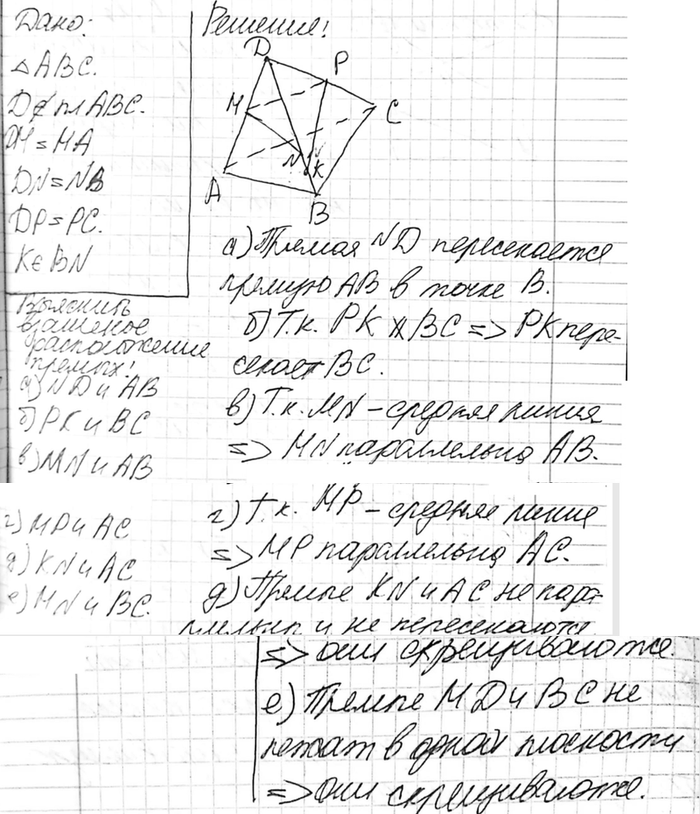 Дано:
△ABC.
D∉ пл ABC.
DM = MA
DN = NB
DP = PC.
K∈BN
Выяснить
взаимное
расположение
прямых:
а) ND и AB
б) PK и BC
в) MN и AB
г) MP и AC
д) KN и AC
е) MN и BC.
Решение:
D
P
M
C
N
K
A
B
а) Прямая ND пересекается
прямую AB в точке B.
б) Т.к. PK ∦ BC => PK пере-
секает BC.
в) Т.к. MN – средняя линия
=> MN параллельна AB.
г) Т.к. MP – средняя линия
=> MP параллельна AC.
д) Прямые KN и AC не парал-
лельны и не пересекаются
=> они скрещиваются.
е) Прямые MD и BC не
лежат в одной плоскости
=> они скрещиваются.